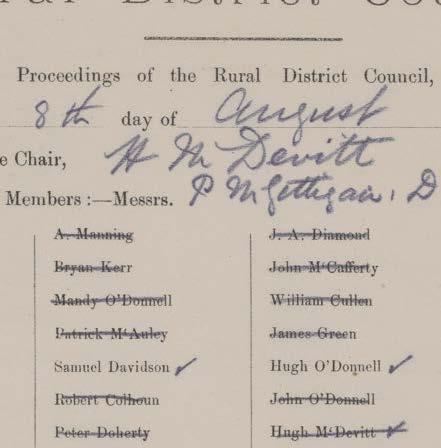 Proceedings of the Rural District Council,
8th day of August
e Chair, H McDevitt
Members :—Messrs. P McGettigan, D
A. Manning
Bryan Kerr
Mandy O'Donnell
Patrick M'Auley
Samuel Davidson ✓
Robert Colhoun
Peter Doherty
J. A. Diamond
John M'Cafferty
William Cullen
James Green
Hugh O'Donnell ✓
John O'Donnell
Hugh M'Devitt ✓